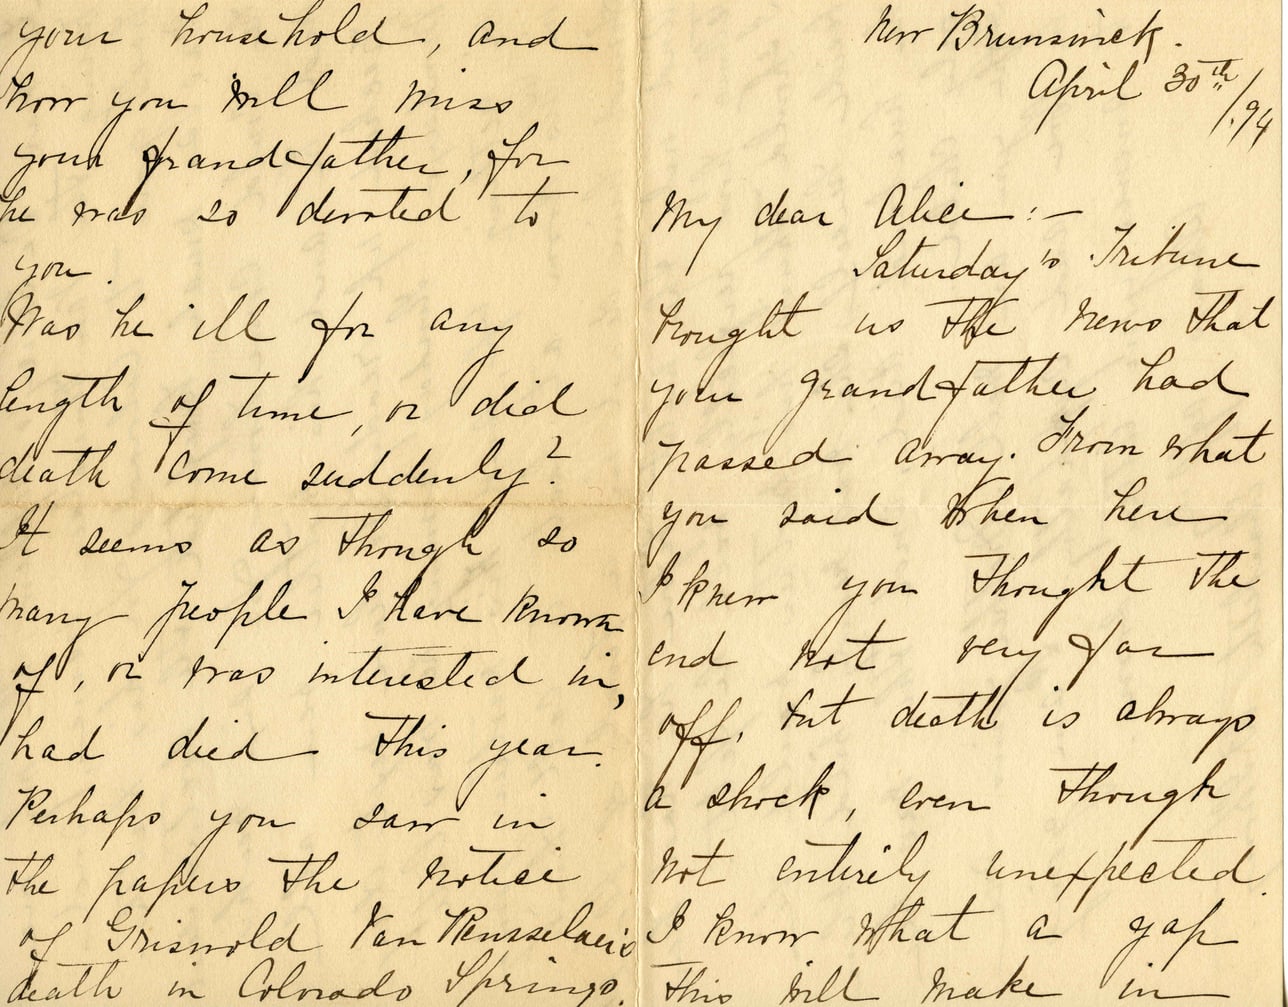 New Brunswick.
April 30th/.94
My dear Alice:—
Saturday's Tribune
brought us the news that
your grandfather had
passed away. From what
you said when here
I knew you thought the
end not very far
off, but death is always
a shock, even though
not entirely unexpected.
I know what a gap
this will make in
your household, and
how you will miss
your grandfather, for
he was so devoted to
you.
Was he ill for any
length of time, or did
death come suddenly?
It seems as though so
many people I have known
of, or was interested in,
had died this year.
Perhaps you saw in
the papers the notice
of Griswold Van Rensselaer's
death in Colorado Springs.